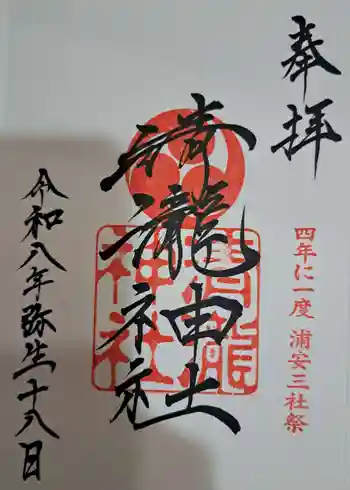 奉拝
四年に一度 浦安三社祭
清瀧神社
清瀧
神社
令和八年弥生十八日